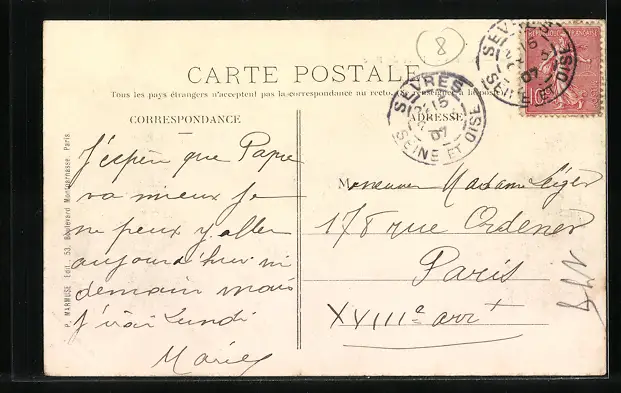 8
CARTE POSTALE
Tous les pays étrangers n'acceptent pas la correspondance au recto. (Se renseigner à la poste)
CORRESPONDANCE
ADRESSE
SÈVRES
15
07
SEINE ET OISE
SÈVRES
15
07
OISE
REPUBLIQUE FRANÇAISE
10
J'espère que Papa
va mieux je
ne peux y aller
aujourd'hui ni
demain mais
j'irai Lundi
Marie
Monsieur Madame Léger
178 rue Ordener
Paris
XVIIIe arrt
P. MARMUSE Edit. 53, Boulevard Montparnasse, Paris